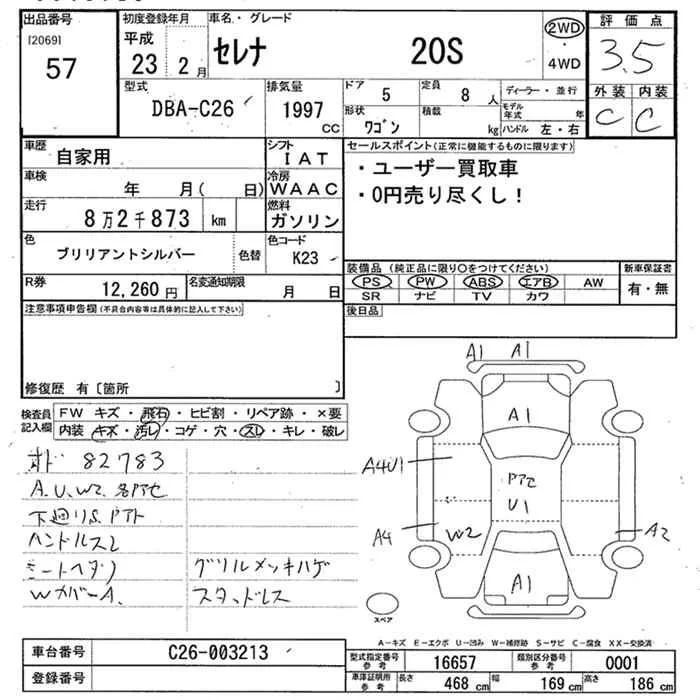 出品番号 初度登録年月 車名・グレード 評価点
[2069] 平成 セレナ 20S 2WD 3.5
57 23 2月 ・4WD
型式 排気量 ドア 5 定員 8人 ディーラー・並行 外装 内装
DBA-C26 1997cc 形状 ワゴン 積載 kg モデル年式 年 C C
ハンドル 左・右
車歴 自家用 シフト IAT セールスポイント(正常に機能するものに限ります)
車検 年 月( 日) 冷房 WAAC ・ユーザー買取車
走行 8万2千873 km 燃料 ガソリン ・0円売り尽くし!
色 ブリリアントシルバー 色替 色コード K23
装備品 (純正品に限り○をつけてください) 新車保証書
R券 12,260円 名変通知期限 月 日 PS PW ABS エアB AW 有・無
SR ナビ TV カワ
注意事項申告欄(不具合内容等は具体的に記入して下さい) 後日品
修復歴 有〔箇所 〕
検査員記入欄 FW キズ・飛石・ヒビ割・リペア跡・×要
内装 キズ・汚レ・コゲ・穴・スレ・キレ・破レ
82783
A.U.W2.各PアC
下廻りS.Pアト
ハンドルスレ
シートヘタリ グリルメッキハゲ
WカバーA. スタッドレス
A1 A1
A1
A4U1 PアC
U1
A4 W2 A2
A1
スペア
A-キズ E-エクボ U-凹み W-補修跡 S-サビ C-腐食 XX-交換済
車台番号 C26-003213 型式指定番号 参考 16657 類別区分番号 参考 0001
登録番号 車庫証明用 参考 長さ 468cm 幅 169cm 高さ 186cm